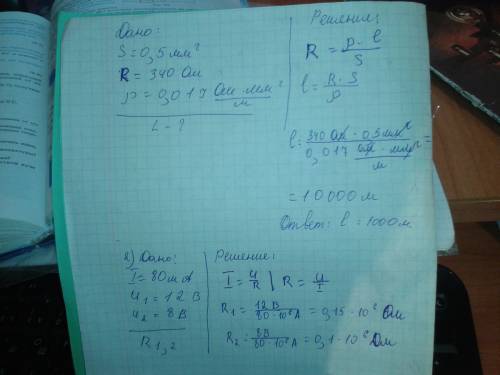 Дано:
S = 0,5 мм²
R = 340 Ом
ρ = 0,017 Ом · мм² / м
L - ?
Решение:
R = ρ · l / S
l = R · S / ρ
l = 340 Ом · 0,5 мм² / 0,017 Ом · мм² / м =
= 10000 м
Ответ: l = 1000 м
2) Дано:
I = 80 мА
U₁ = 12 В
U₂ = 8 В
R₁,₂
Решение:
I = U / R | R = U / I
R₁ = 12 В / 80 · 10² А = 0,15 · 10² Ом
R₂ = 8 В / 80 · 10² А = 0,1 · 10² Ом